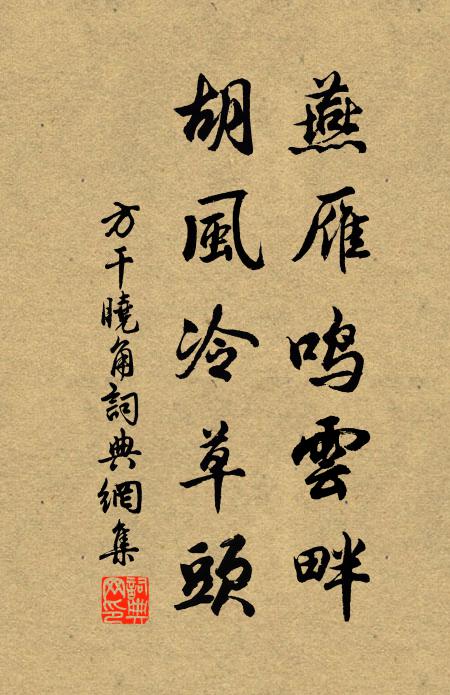 燕雁鳴雲畔
胡風冷草頭
方干曉角詞典網集
詞典网印